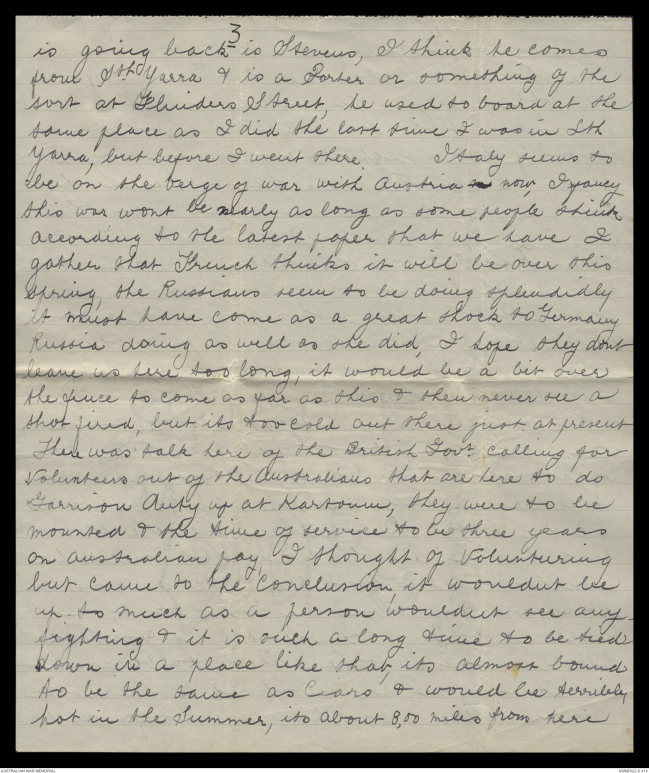 3
is going back is Stevens, I think he comes
from Sth Yarra & is a Porter or something of the
sort at Flinders Street, he used to board at the
same place as I did the last time I was in Sth
Yarra, but before I went there. Italy seems to
be on the verge of war with Austria now, I fancy
this war wont be nearly as long as some people think
according to the latest paper that we have I
gather that French thinks it will be over this
spring, the Russians seem to be doing splendidly
it must have come as a great shock to Germany
Russia doing as well as she did, I hope they dont
leave us here too long, it would be a bit over
the fence to come as far as this & then never see a
shot fired, but its too cold out there just at present
There was talk here of the British Govt. calling for
Volunteers out of the Australians that are here to do
Garrison duty up at Kartoum, they were to be
mounted & the time of service to be three years
on Australian pay, I thought of Volunturing
but came to the conclusion, it wouldnt be
up to much as a person wouldnt see any
fighting & it is such a long time to be tied
down in a place like that, its almost bound
to be the same as Ciaro & would be terribley
hot in the Summer, its about 8,00 miles from here
AUSTRALIAN WAR MEMORIAL